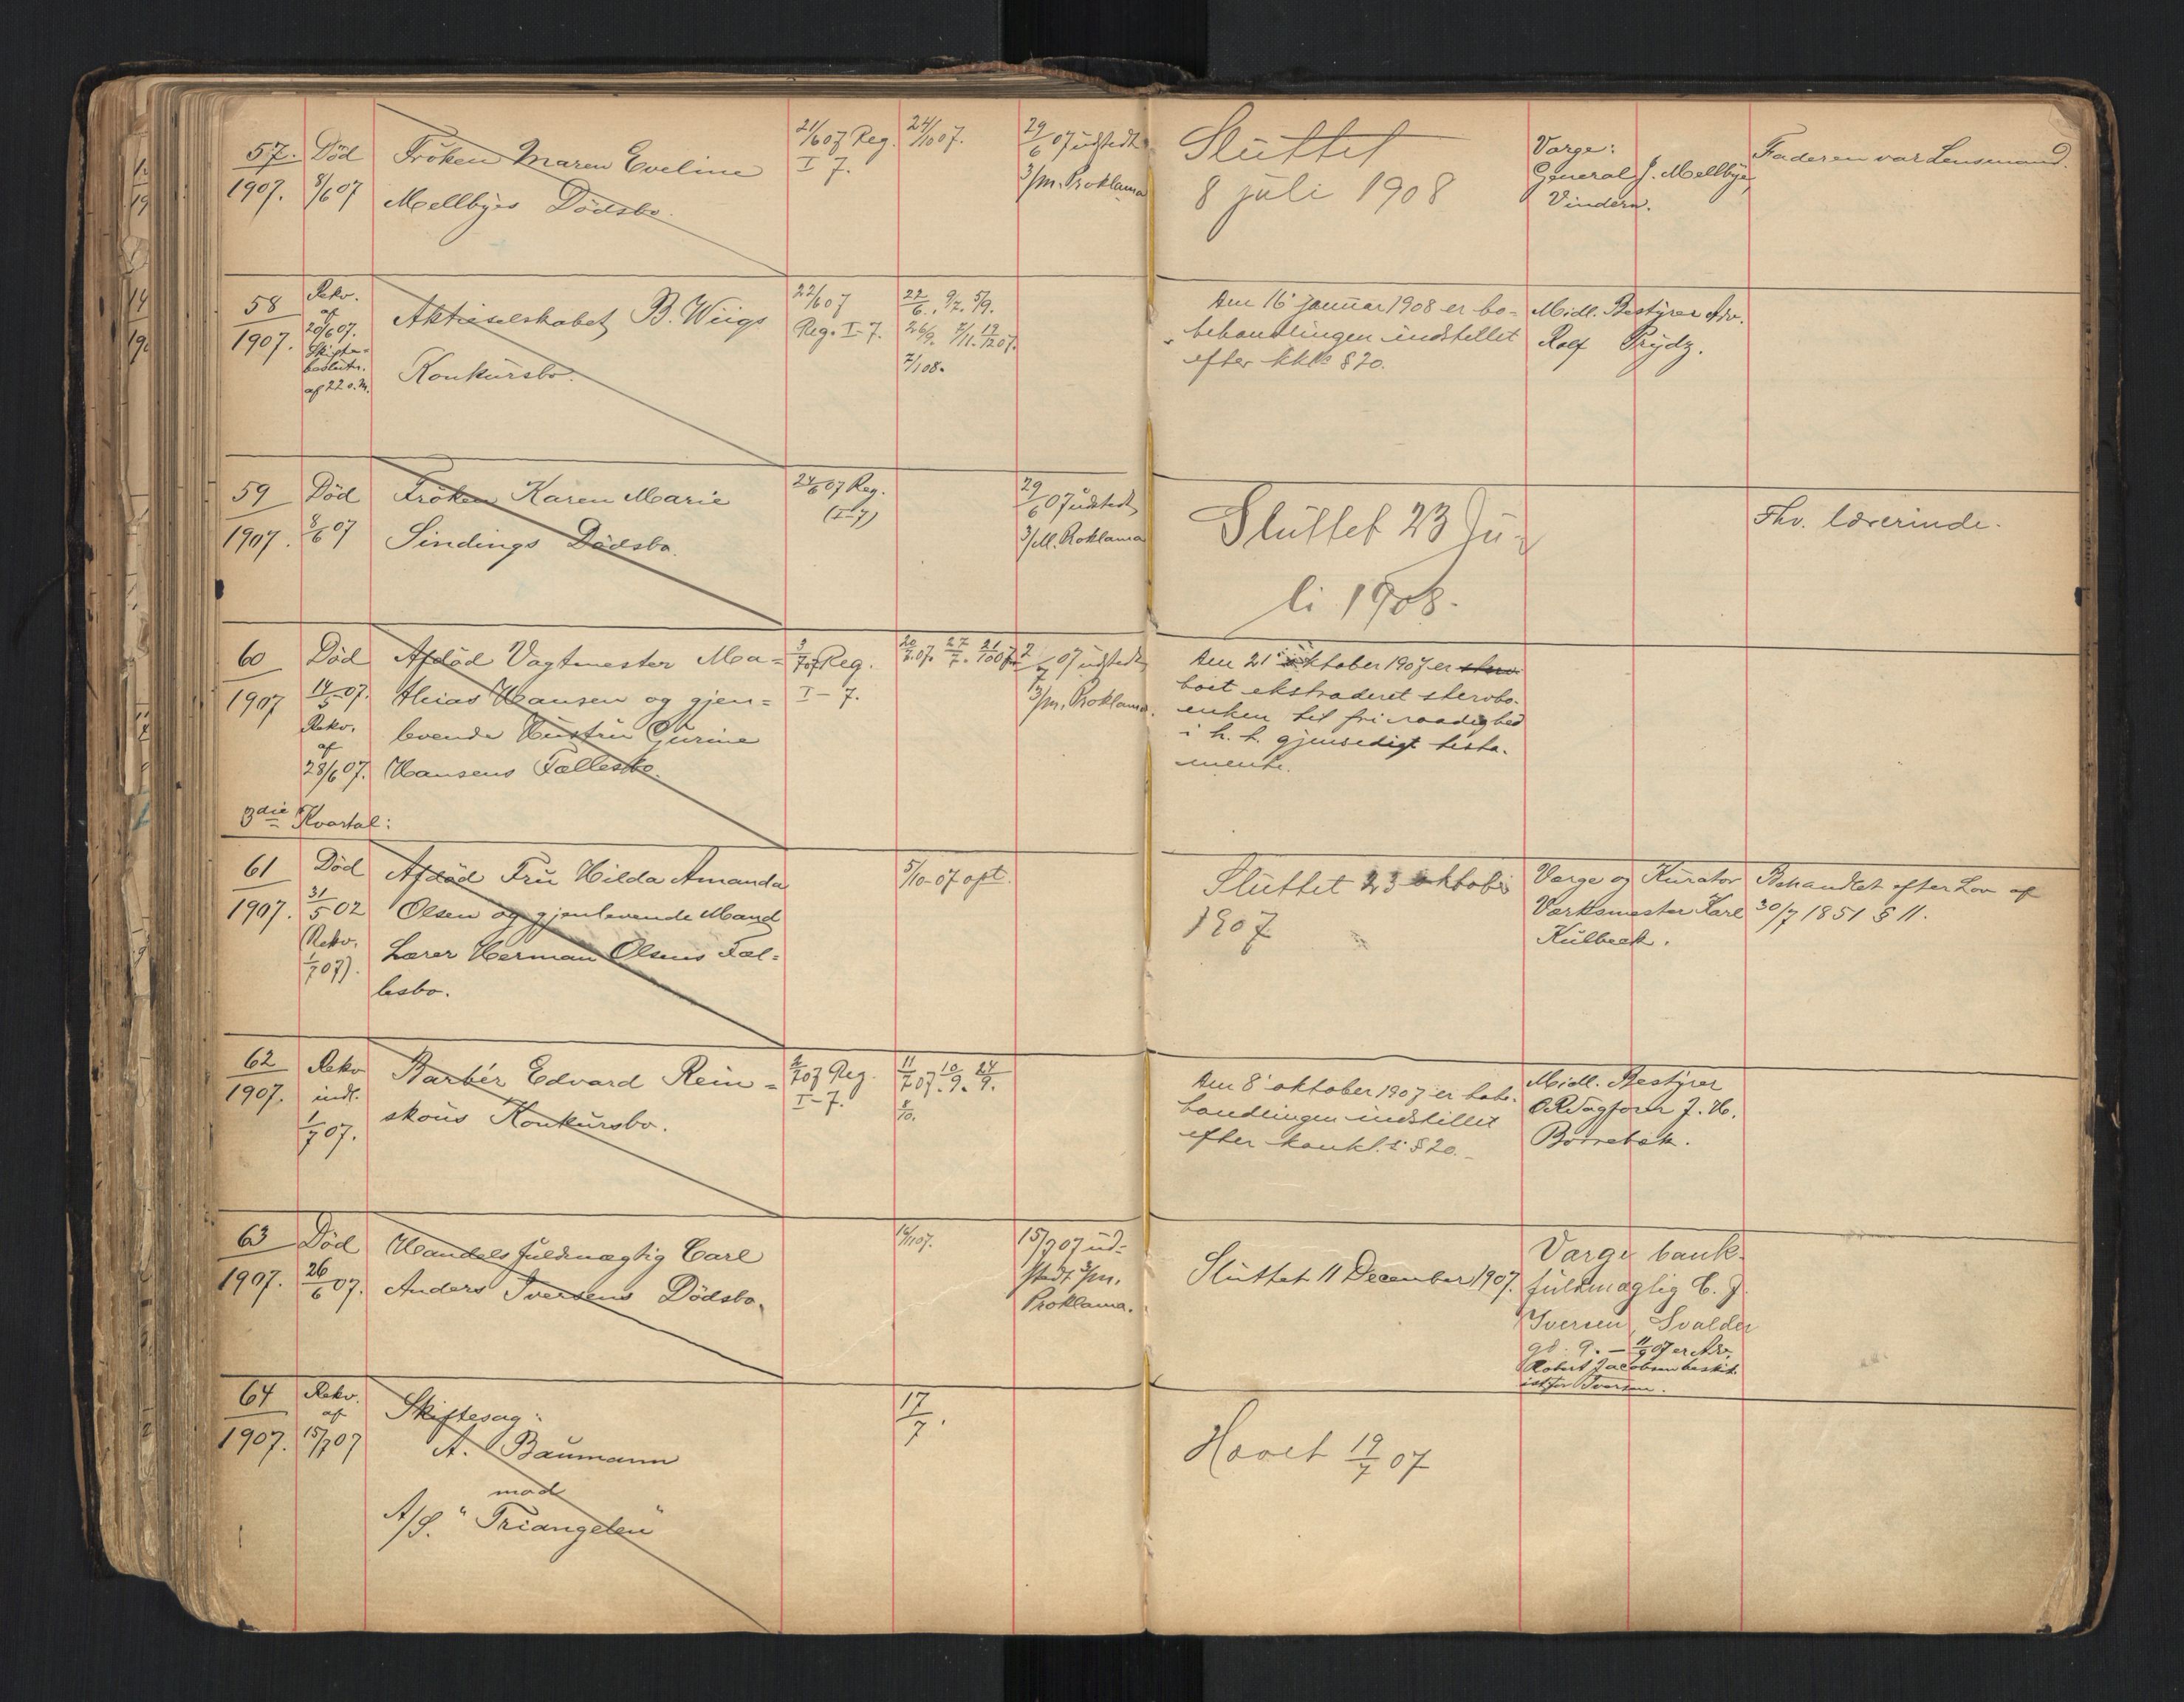 57. Död Fröken Maren Eveline 21/6 07 Reg. 24/10 07. 29/6 07 udstedt
1907. 8/6 07 Mellbyes Dödsbo. I 7. 3/m. Proklama
Sluttet
8 juli 1908
Værge:
General J. Mellbye,
Vindern.
Faderen var Lensmand.
58
1907.
Rekv.
af
20/6 07.
Skifte-
beslutn.
af 22 s. M.
Aktieselskabet B. Wiigs
Konkursbo.
22/6 07
Reg. I-7.
22/6. 9/7. 5/9.
26/9. 7/11. 19/12 07.
7/1 08.
Den 16' januar 1908 er bo-
behandlingen indstillet
efter kkl. § 20.
Midl. Bestyrer Adv.
Rolf Prydz.
59 Död Fröken Karen Marie
1907. 8/6 07 Sindings Dödsbo.
24/6 07 Reg.
(I-7)
29/6 07 udstedt
3/M. Proklama
Sluttet 23 Ju-
li 1908.
Fhv. lærerinde.
60
1907
Död
14/5 07.
Rekv.
af
28/6 07.
Afdöd Vagtmester Ma-
thias Hansen og gjen-
levende Hustru Gurine
Hansens Fællesbo.
3/7 07 Reg.
I-7.
2/7 07 udstedt
3/m. Proklama.
Den 21' oktober 1907 er
boet ekstraderet stervbo-
enken til fri raadighed
i h. t. gjensidigt testa-
mente.
3die Kvartal:
61
1907.
Död
31/5 02
(Rekv.
1/7 07).
Afdöd Fru Hilda Amanda
Olsen og gjenlevende Mand
Lærer Herman Olsens Fæl-
lesbo.
5/10-07 opt.
Sluttet 23 oktober
1907
Værge og Kurator
Værksmester Karl
Kulbeck.
Behandlet efter Lov af
30/7 1851 § 11.
62
1907.
Rekv
indl.
1/7 07.
Barbér Edvard Rein-
skous Konkursbo.
2/7 07 Reg.
I-7.
11/7 07. 10/9. 24/9.
8/10.
Den 8' oktober 1907 er bobe-
handlingen indstillet
efter konkl.s § 20.
Midl. Bestyrer
O.R.Sagförer J. H.
Borrebæk.
63
1907.
Död
26/6 07.
Handelsfuldmægtig Carl
Anders Iversens Dödsbo.
15/7 07 ud-
stedt 3/m.
Proklama.
Sluttet 11 December 1907.
Værge bank-
fuldmægtig C. J.
Iversen, Svolder
gd. 9. – 11/9 07 er Adv.
Robert Jacobsen beskik.
istfor Iversen.
64
1907.
Rekv.
af
15/7 07
Skiftesag:
A. Baumann
mod
A/S. "Triangelen"
17/7.
Hævet 19/7 07